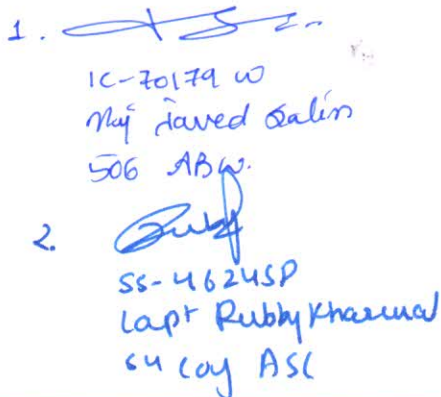 1.
IC-70179 W
Maj Javed Salim
506 ABW.
2.
SS-46245P
Capt Rubby Kharwal
54 Coy ASC